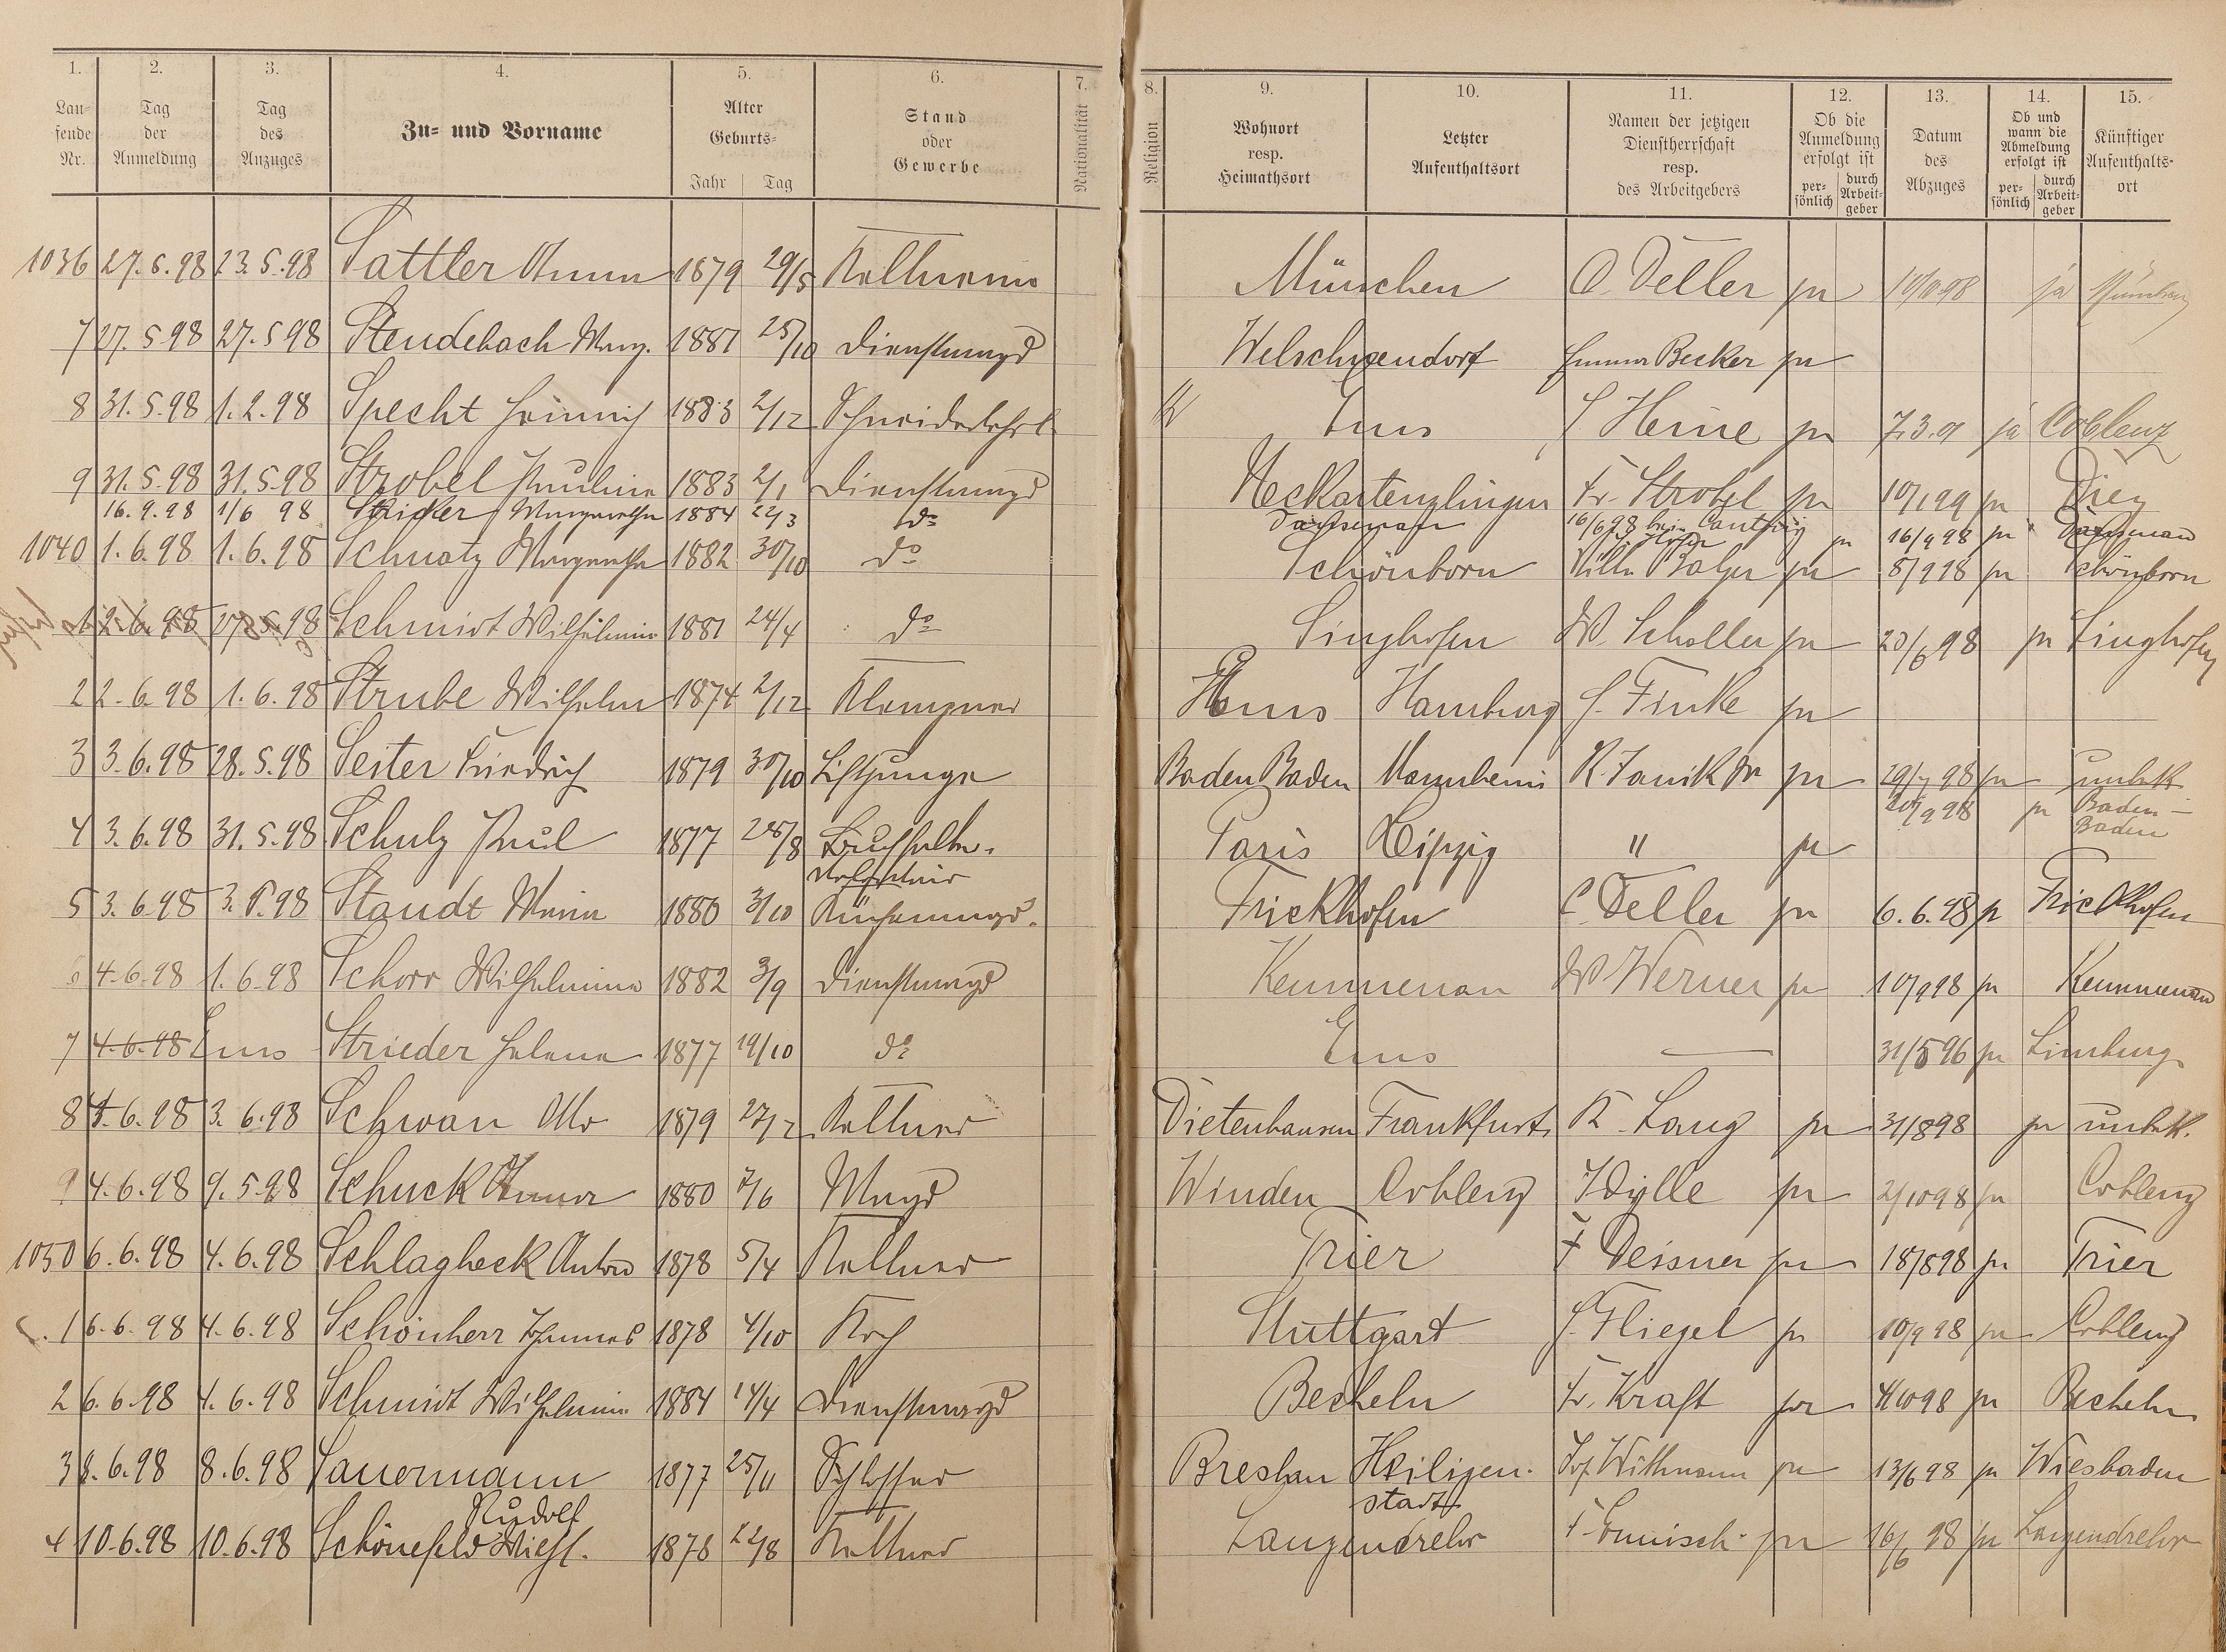 1. 2. 3. 4. 5. 6. 7. 8. 9. 10. 11. 12. 13. 14. 15.
Laufende Nr. | Tag der Anmeldung | Tag des Anzuges | Zu- und Vorname | Alter Geburts- Jahr Tag | Stand oder Gewerbe | Nationalität | Religion | Wohnort resp. Heimathsort | Letzter Aufenthaltsort | Namen der jetzigen Dienstherrschaft resp. des Arbeitgebers | Ob die Anmeldung erfolgt ist persönlich durch Arbeitgeber | Datum des Abzuges | Ob und wann die Abmeldung erfolgt ist persönlich durch Arbeitgeber | Künftiger Aufenthaltsort
1036 27.5.98 23.5.98 Sattler Anna 1879 29/5 Kellnerin München O. Deller ja 10/10 98 ja München
7 27.5.98 27.5.98 Stendebach Marg. 1881 25/10 Dienstmagd Welschneudorf Becker ja
8 31.5.98 1.2.98 Specht Heinrich 1883 2/12 Schneiderlehrl. Ems Heine ja 7.3. ja Coblenz
9 31.5.98 31.5.98 Strobel Pauline 1883 2/1 Dienstmagd Neckartenzlingen Fr. Strobel ja 10/1 99 ja Diez
16.9.98 1/6 98 Stricker Margarethe 1884 22/3 do Dausenau 16/6 98 bei ja 16/9 98 ja Dausenau
1040 1.6.98 1.6.98 Schnatz Margarethe 1882 30/10 do Schönborn Balzer ja 8/9 98 ja Schönborn
1 2.6.98 27.5.98 Schmidt Wilhelmine 1881 24/4 do Singhofen W. Scholler ja 20/6 98 ja Singhofen
2 2.6.98 1.6.98 Strube Wilhelm 1874 2/12 Klempner Ems Hamburg Finke ja
3 3.6.98 28.5.98 Seiter Friedrich 1879 30/10 Liftjunge Baden Baden Mannheim R. ja 29/7 98 ja unbek
20/9 98 ja Baden-
Baden
4 3.6.98 31.5.98 Schulz Paul 1877 28/8 Buchhalter. Paris Leipzig " ja
5 3.6.98 3.6.98 Staudt Maria 1880 3/10 Küchenmagd. Frickhofen C. Deller ja 6.6.98 ja Frickhofen
6 4.6.98 1.6.98 Schorr Wilhelmine 1882 3/9 Dienstmagd Kemmenau W Werner ja 10/9 98 ja Kemmenau
7 4.6.98 Ems Strieder Helene 1877 19/10 do Ems — 31/5 96 ja Limburg
8 4.6.98 3.6.98 Schwan Otto 1879 27/12 Kellner Dietenhausen Frankfurt K. Lang ja 31/8 98 ja unbek.
9 4.6.98 9.5.98 Schuck Anna 1880 7/6 Magd Winden Coblenz Idylle ja 2/10 98 ja Coblenz
1050 6.6.98 4.6.98 Schlagheck Anton 1878 5/4 Kellner Trier F Deisner ja 18/8 98 ja Trier
1 6.6.98 4.6.98 Schönherr Johannes 1878 4/10 Koch Stuttgart Fliegel ja 10/9 98 ja Coblenz
2 6.6.98 4.6.98 Schmidt Wilhelmine 1884 14/4 Dienstmagd Becheln Fr. Kraft ja 4/10 98 ja Becheln
3 8.6.98 8.6.98 Sauermann 1877 25/11 Schlosser Breslau Heiligen- Jos. Wittmann ja 13/6 98 ja Wiesbaden
Rudolf stadt
4 10.6.98 10.6.98 Schönefeld Wilh. 1878 22/8 Kellner Langendreer ja 16/6 98 ja Langendreer